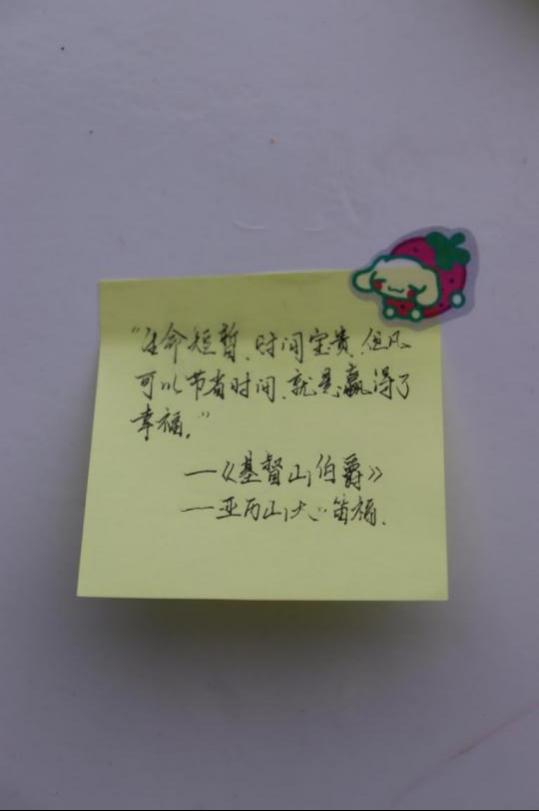 "生命短暂、时间宝贵、但凡
可以节省时间、就是赢得了
幸福。"
—《基督山伯爵》
—亚历山大·笛福.